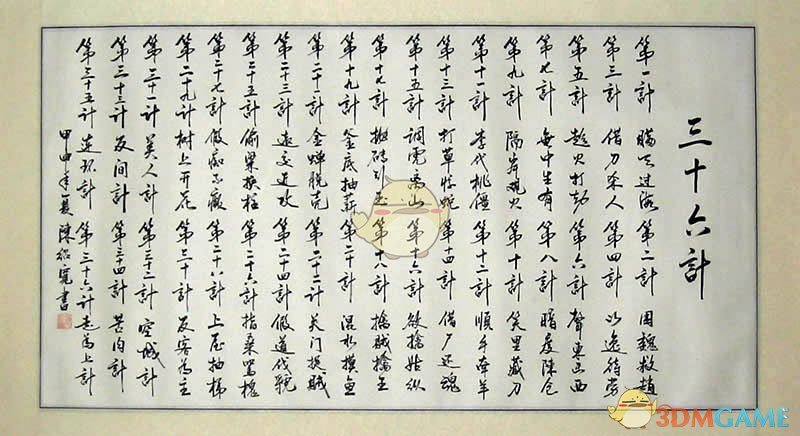 三十六計
第一計 瞞天过海 第二計 围魏救趙
第三計 借刀杀人 第四計 以逸待劳
第五計 趁火打劫 第六計 聲東击西
第七計 無中生有 第八計 暗度陳仓
第九計 隔岸观火 第十計 笑里藏刀
第十一計 李代桃僵 第十二計 順手牵羊
第十三計 打草惊蛇 第十四計 借尸还魂
第十五計 調虎离山 第十六計 欲擒姑纵
第十七計 抛砖引玉 第十八計 擒贼擒王
第十九計 釜底抽薪 第二十計 混水摸鱼
第二十一計 金蝉脱壳 第二十二計 关门捉贼
第二十三計 远交近攻 第二十四計 假道伐虢
第二十五計 偷梁换柱 第二十六計 指桑骂槐
第二十七計 假痴不癫 第二十八計 上屋抽梯
第二十九計 树上开花 第三十計 反客为主
第三十一計 美人計 第三十二計 空城計
第三十三計 反间計 第三十四計 苦肉計
第三十五計 连环計 第三十六計 走为上計
甲申年夏 陳宽書
3DMGAME